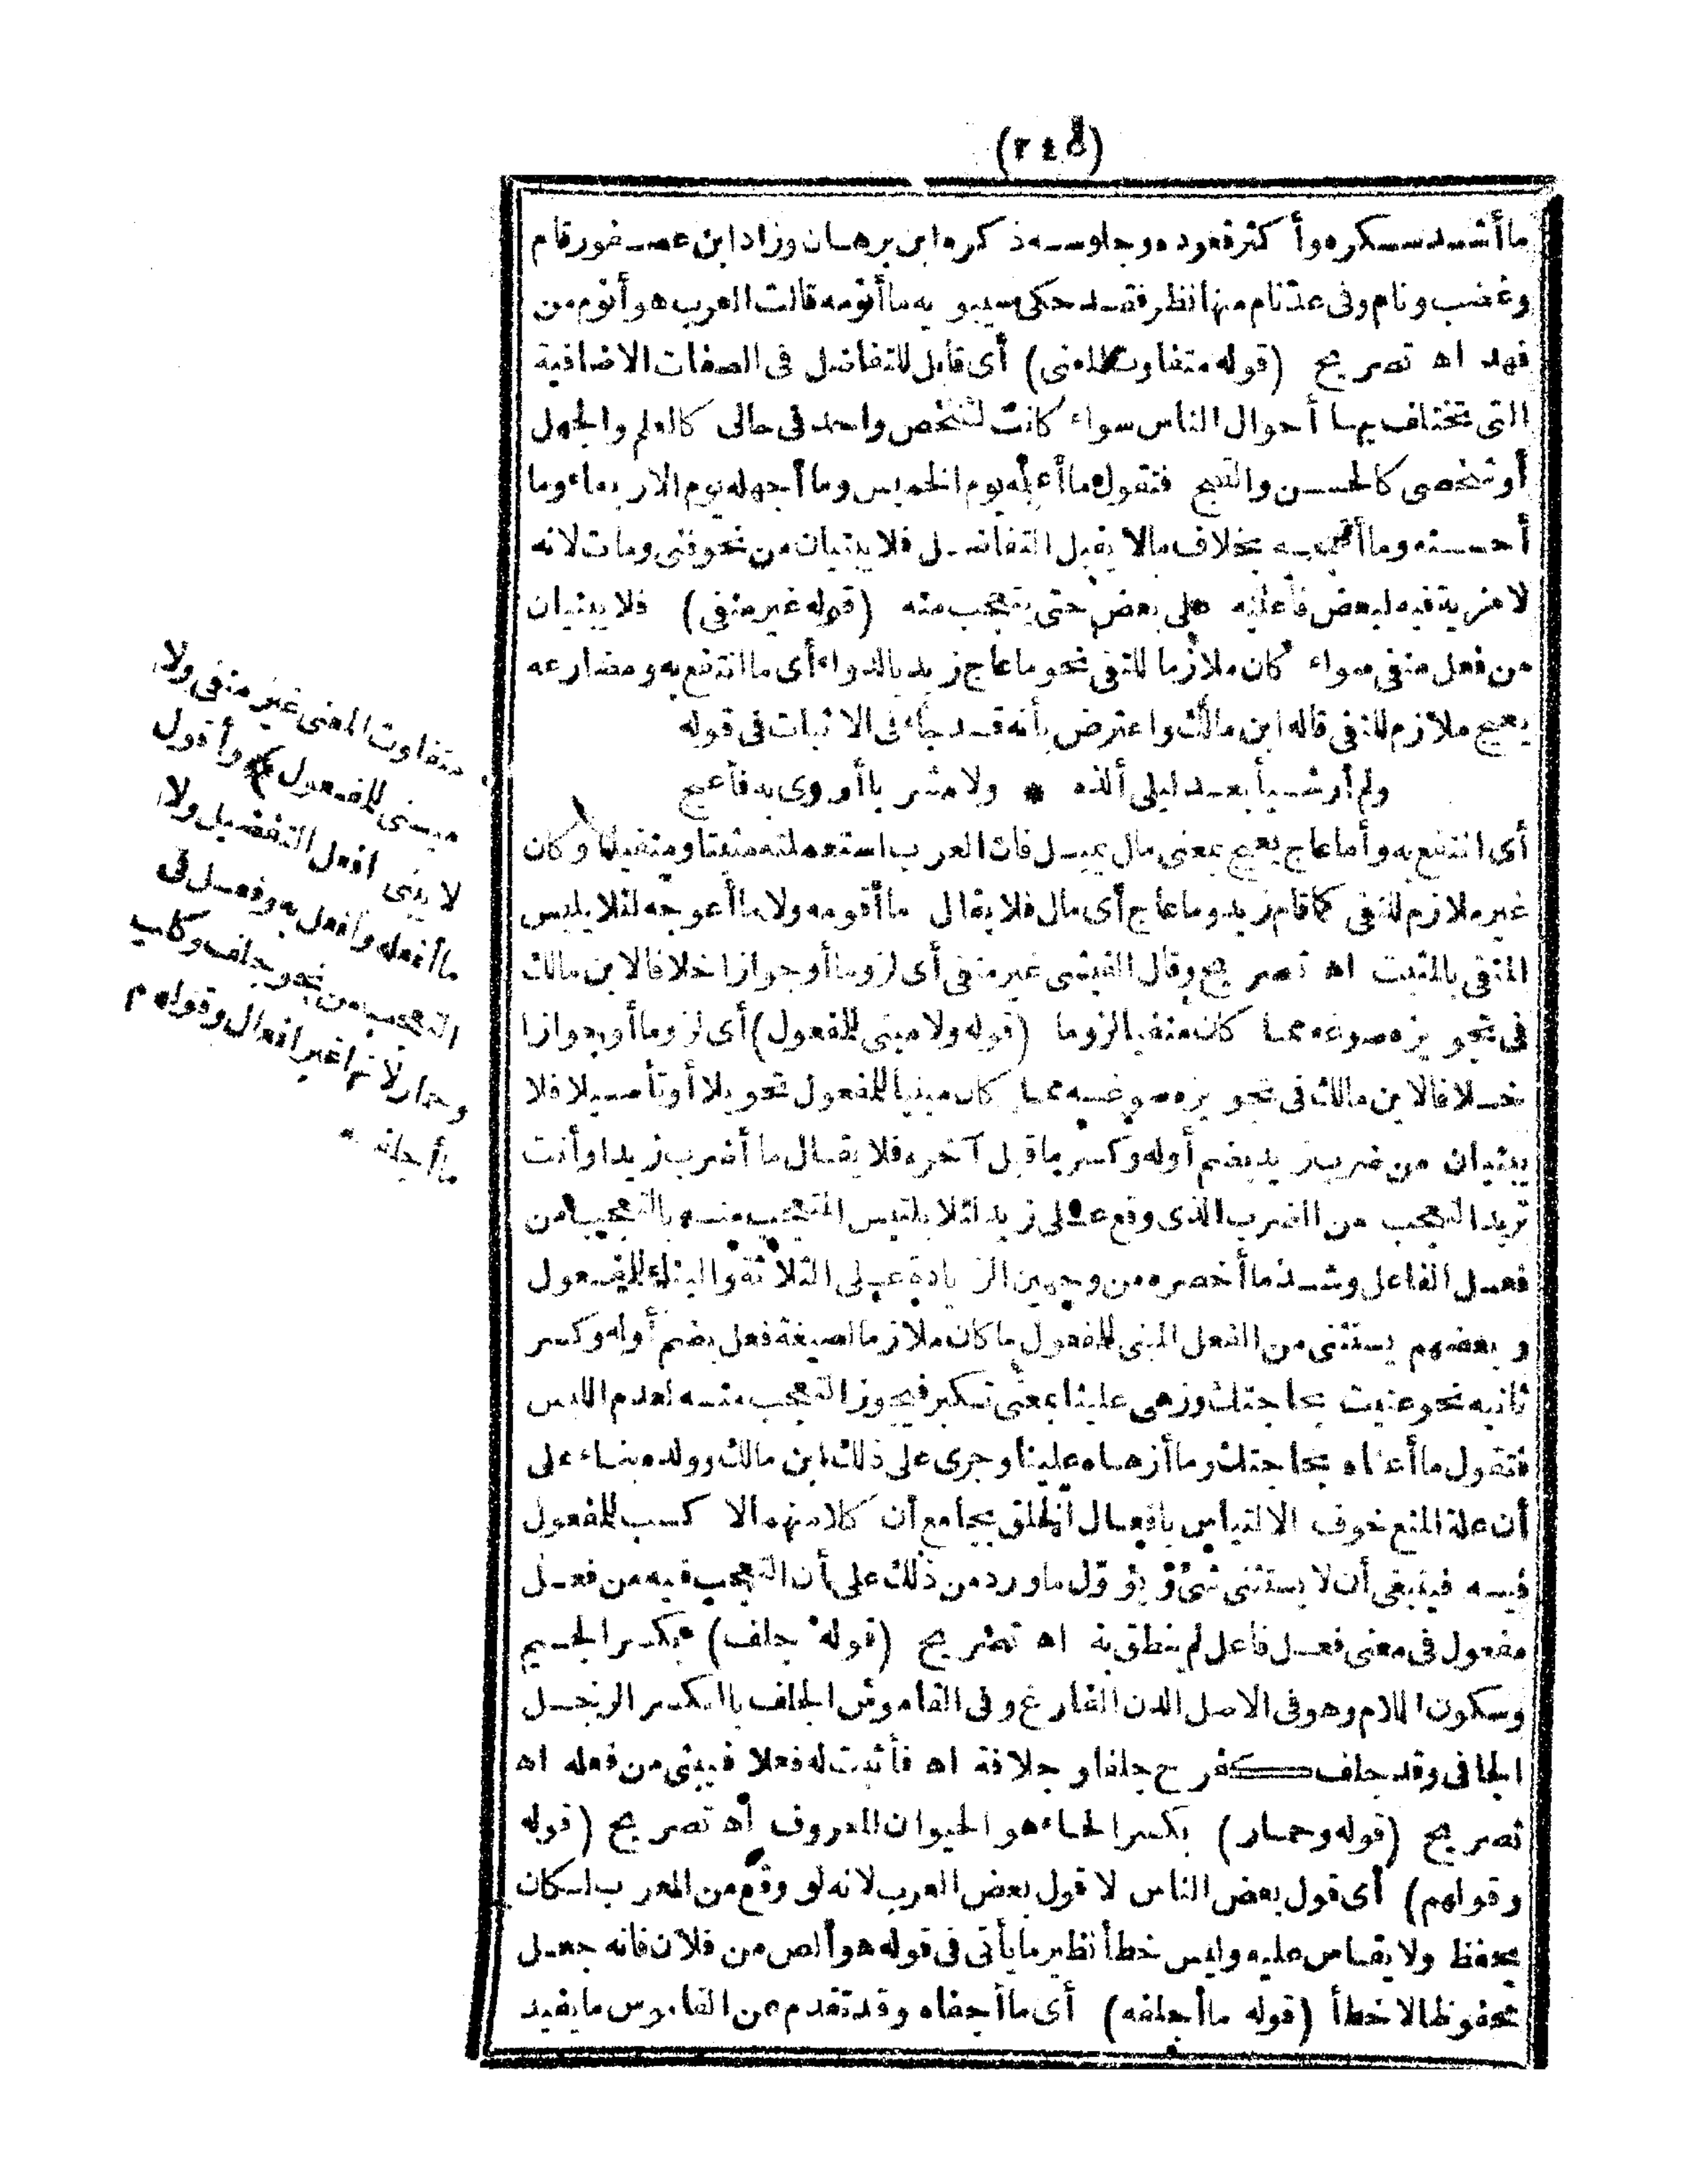 (٢٤٥)
ما أشد سكره وأكثر قعوده وجلوسه ذكره ابن برهان وزاد ابن عصفور قام
وغضب ونام وفى عدّ نام منها نظر فقد حكى سيبويه ما أنومه قالت العرب هو أنوم من
فهد اه تصريح (قوله متفاوت المعنى) أى قابل للتفاضل فى الصفات الاضافية
التى تختلف بها أحوال الناس سواء كانت لشخص واحد فى حالى كالعلم والجهل
أو شخصى كالحسن والقبح فتقول ما أعلمه يوم الخميس وما أجهله يوم الاربعاء وما
أحسنه وما أقبحه بخلاف مالا يقبل التفاضل فلا يبنيان من نحو فنى ومات لانه
لا مزية فيه لبعض فاعليه على بعض حتى يتعجب منه (قوله غير منفى) فلا يبنيان
من فعل منفى سواء كان ملازما للنفى نحو ما عاج زيد بالدواء أى ما انتفع به ومضارعه
يعيج ملازم للنفى قاله ابن مالك واعترض بأنه قد جاء فى الاثبات فى قوله
ولم أر شيأ بعد ليلى ألذه * ولا مشربا أروى به فأعيج
أى انتفع به وأما عاج يعيج بمعنى مال يميل فان العرب استعملته مثبتا ومنفيا أو كان
غير ملازم للنفى كما قام زيد وما عاج أى مال فلا يقال ما أقومه ولا ما أعوجه لئلا يلبس
المنفى بالمثبت اه تصريح وقال الفيشى غير منفى أى لزوما أو جوازا خلافا لابن مالك
فى تجويزه صوغه مما كان منفيا لزوما (قوله ولا مبنى للمفعول) أى لزوما أو جوازا
خلافا لابن مالك فى تجويزه صوغه مما كان مبنيا للمفعول تحويلا أو تأصيلا فلا
يبنيان من ضرب زيد بضم أوله وكسر ما قبل آخره فلا يقال ما أضرب زيدا وأنت
تريد التعجب من الضرب الذى وقع على زيد لئلا يلتبس المتعجب منه بالتعجب من
فعل الفاعل وشذ ما أخصره من وجهين الزيادة على الثلاثة والبناء للمفعول
وبعضهم يستثنى من الفعل المبنى للمفعول ما كان ملازما لصيغة فعل بضم أوله وكسر
ثانيه نحو عنيت بحاجتك وزهى علينا بمعنى تكبر فيجوز التعجب منه لعدم اللبس
فتقول ما أعناه بحاجتك وما أزهاه علينا وجرى على ذلك ابن مالك وولده بناء على
أن علة المنع خوف الالتباس بأفعال الخلق بجامع أن كلا منهما لا كسب للمفعول
فيه فينبغى أن لا يستثنى شئ ويؤوّل ما ورد من ذلك على أن التعجب فيه من فعل
مفعول فى معنى فعل فاعل لم ينطق به اه تصريح (قوله جلف) بكسر الجيم
وسكون اللام وهو فى الاصل الدن الفارغ وفى القاموس الجلف بالكسر الرجل
الجافى وقد جلف كفرح جلفا وجلافة اه فأثبت له فعلا فيبنى من فعله اه
تصريح (قوله وحمار) بكسر الحاء هو الحيوان المعروف اه تصريح (قوله
وقولهم) أى قول بعض الناس لا قول بعض العرب لانه لو وقع من العرب لكان
يحفظ ولا يقاس عليه وليس خطأ نظير ما يأتى فى قوله هو ألص من فلان فانه جعل
محفوظا لا خطأ (قوله ما أجلفه) أى ما أجفاه وقد تقدم عن القاموس ما يفيد
متفاوت المعنى غير منفى ولا
مبنى للمفعول﴾ وأقول
لا يبنى افعل التفضيل ولا
ما أفعله وأفعل به وفعل فى
التعجب من نحو جلف وكلب
وحمار لانها غير افعال وقولهم
ما أجلفه